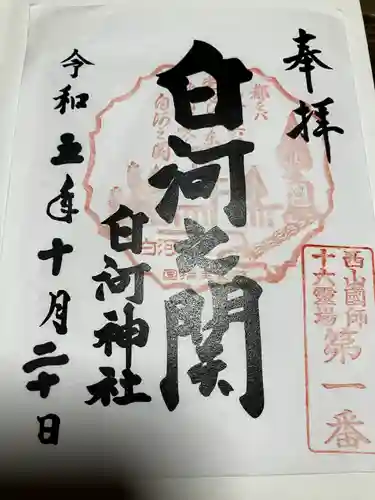 奉拝
白河之関
白河神社
令和五年十月二十日
西山國師
十六霊場
第一番